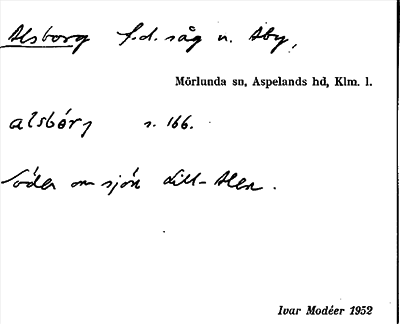 Alsborg f.d. såg u. Åby,
Mörlunda sn, Aspelands hd, Klm. l.
alsbórj s. 166.
Söder om sjön Lill-Alen.
Ivar Modéer 1952